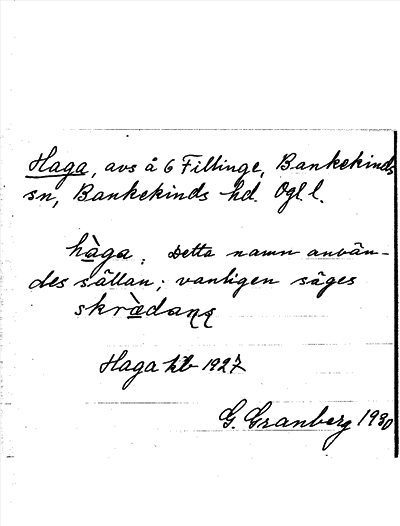 Haga, avs å 6 Fillinge, Bankekinds
sn, Bankekinds hd. Ögl. l.
hàga; Detta namn använ-
des sällan; vanligen säges
skràdaṇṣ
Haga kb 1927
G. Granberg 1930